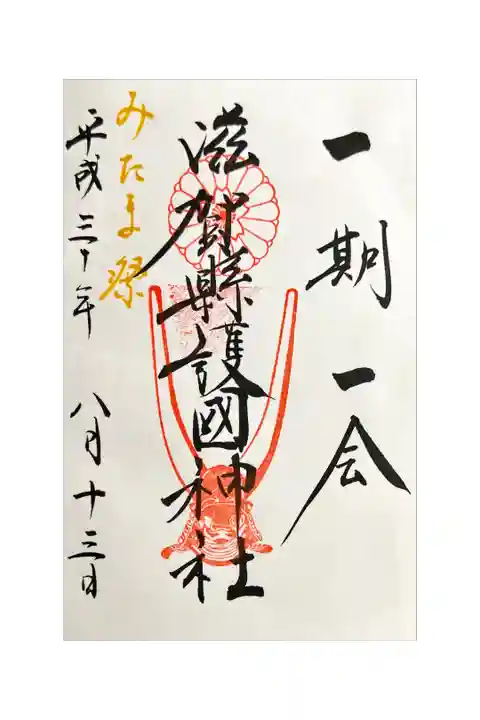 一期一会
滋賀縣護國神社
みたま祭
平成三十年 八月十三日